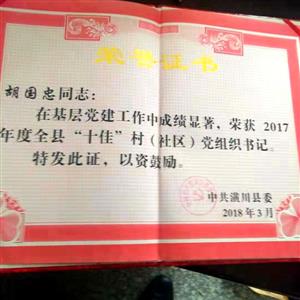 荣誉证书
胡国忠同志：
在基层党建工作中成绩显著，荣获 2017
年度全县“十佳”村（社区）党组织书记。
特发此证，以资鼓励。
中共潢川县委
2018年3月